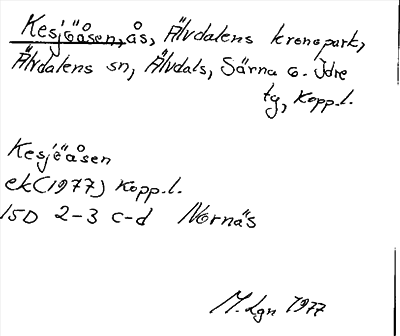 Kesjöåsen, ås, Älvdalens kronopark,
Älvdalens sn, Älvdals, Särna o. Idre
tg, Kopp.l.
Kesjöåsen
ek(1977) Kopp.l.
15D 2-3 c-d Nornäs
M.Lgn 1977